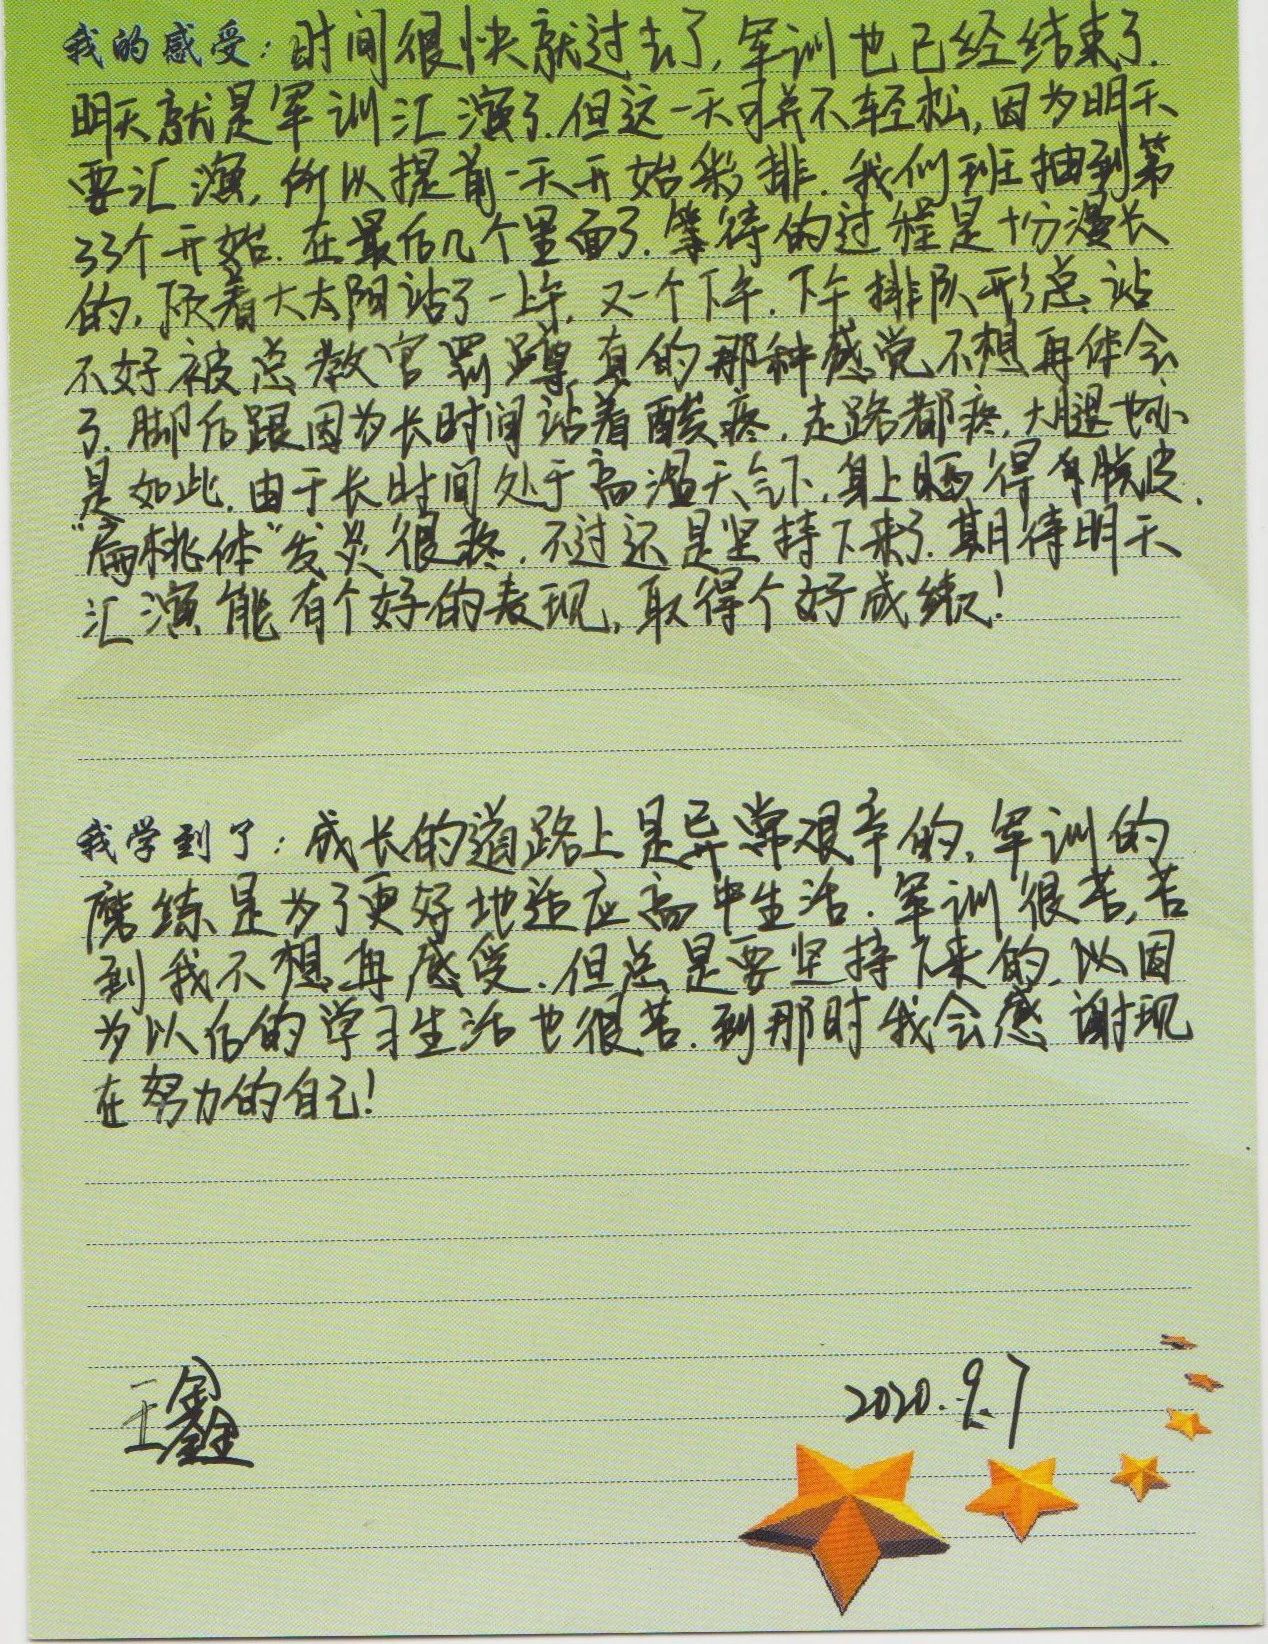 我的感受：时间很快就过去了,军训也已经结束了.
明天就是军训汇演了.但这一天可并不轻松,因为明天
要汇演,所以提前一天开始彩排.我们班抽到第
33个开始.在最后几个里面了.等待的过程是十分漫长
的,顶着大太阳站了一上午,又一个下午.下午排队形总站
不好被总教官罚蹲,真的那种感觉不想再体会
了.脚后跟因为长时间站着酸疼.走路都疼,大腿也亦
是如此.由于长时间处于高温天气下,身上晒得有脱皮.
“扁桃体”发炎很疼.不过还是坚持下来了.期待明天
汇演能有个好的表现,取得个好成绩!
我学到了：成长的道路上是异常艰辛的,军训的
磨练是为了更好地适应高中生活.军训很苦,苦
到我不想再感受.但总是要坚持下来的,以因
为以后的学习生活也很苦.到那时我会感谢现
在努力的自己!
王鑫
2020.9.7